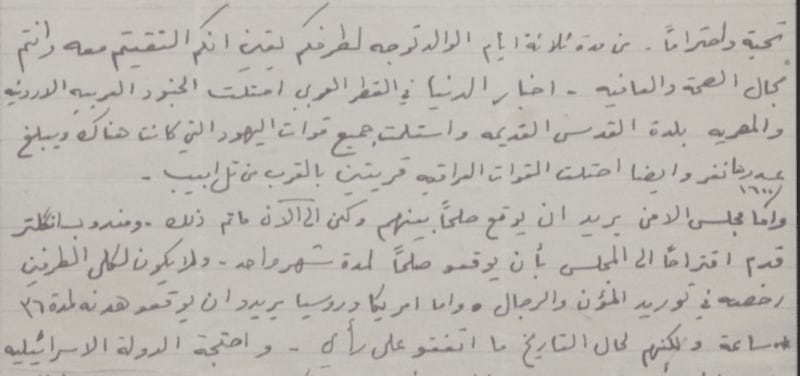 تحية واحتراماً. من مدة ثلاثة ايام الوالد توجه لطرفكم يقين انكم التقيتم معه وانتم
بحال الصحة والعافيه - اخبار الدنيا في القطر العربي احتلت الجنود العربيه الاردنيه
والمصريه بلدة القدس القديمه واستلمت جميع قوات اليهود التي كانت هناك ويبلغ
عددها ١٦٠٠ نفر وايضا احتلت القوات العراقيه قريتين بالقرب من تل ابيب -
واما مجلس الامن يريد ان يوقع صلحاً بينهم ولكن الى الآن ما تم ذلك - ومندوب انكلتر
قدم اقتراحاً الى المجلس بأن يوقعو صلحاً لمدة شهر واحد - ولا يكون لكلى الطرفين
رخصه في توريد المؤن والرجال ٠ واما امريكا وروسيا يريدو ان يوقعو هدنه لمدة ٣٦
ساعة ولكنهم لحال التاريخ ما اتفقو على رأي - واحتجة الدولة الاسرائيليه